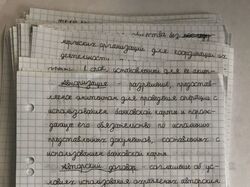 чества без
ерческих организаций для координации их
деятельности
1 слов. установленный для ее
авторизация - разрешение, предостав-
ляемое эмитентом для проведения операции с
использованием банковской карты и порож-
дающее его обязательство по исполнению
представленных документов, составленных с
использованием банковской карты
авторский договор - соглашение об ус-
ловиях использования охраняемых авторским